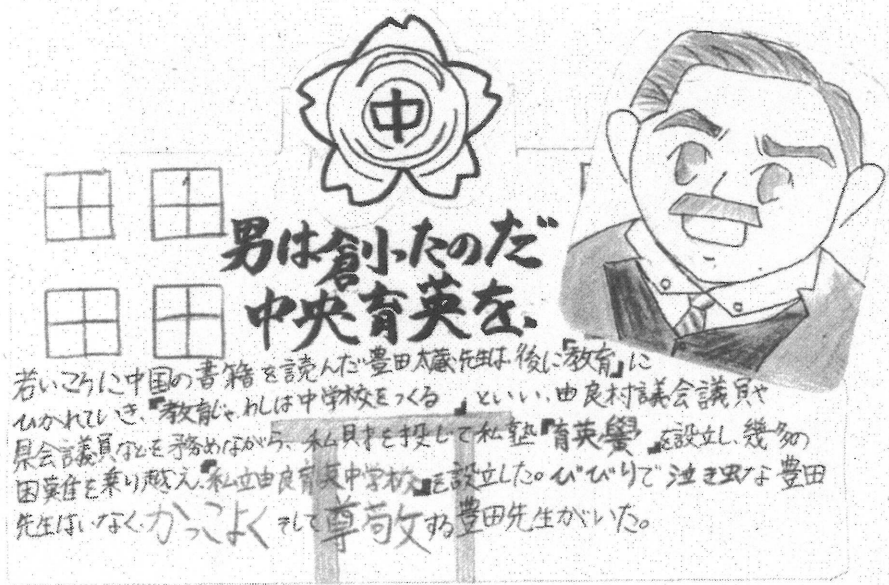 中
男は創ったのだ
中央育英を、
若いころに中国の書籍を読んだ豊田太蔵先生は、後に『教育』に
ひかれていき、『教育じゃ、わしは中学校をつくる』といい、由良村議会議員や
県会議員などを務めながら、私財を投じて私塾『育英黌』を設立し、幾多の
困難を乗り越え、『私立由良育英中学校』を設立した。びびりで泣き虫な豊田
先生はいなく、かっこよくそして尊敬する豊田先生がいた。